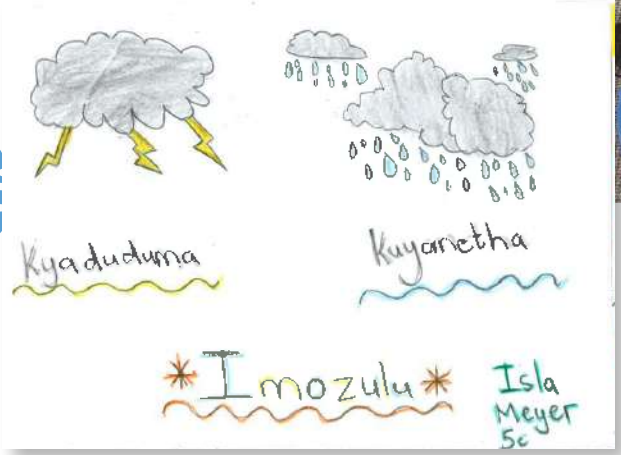 Kyaduduma
Kuyanetha
* Imozulu *
Isla
Meyer
5c